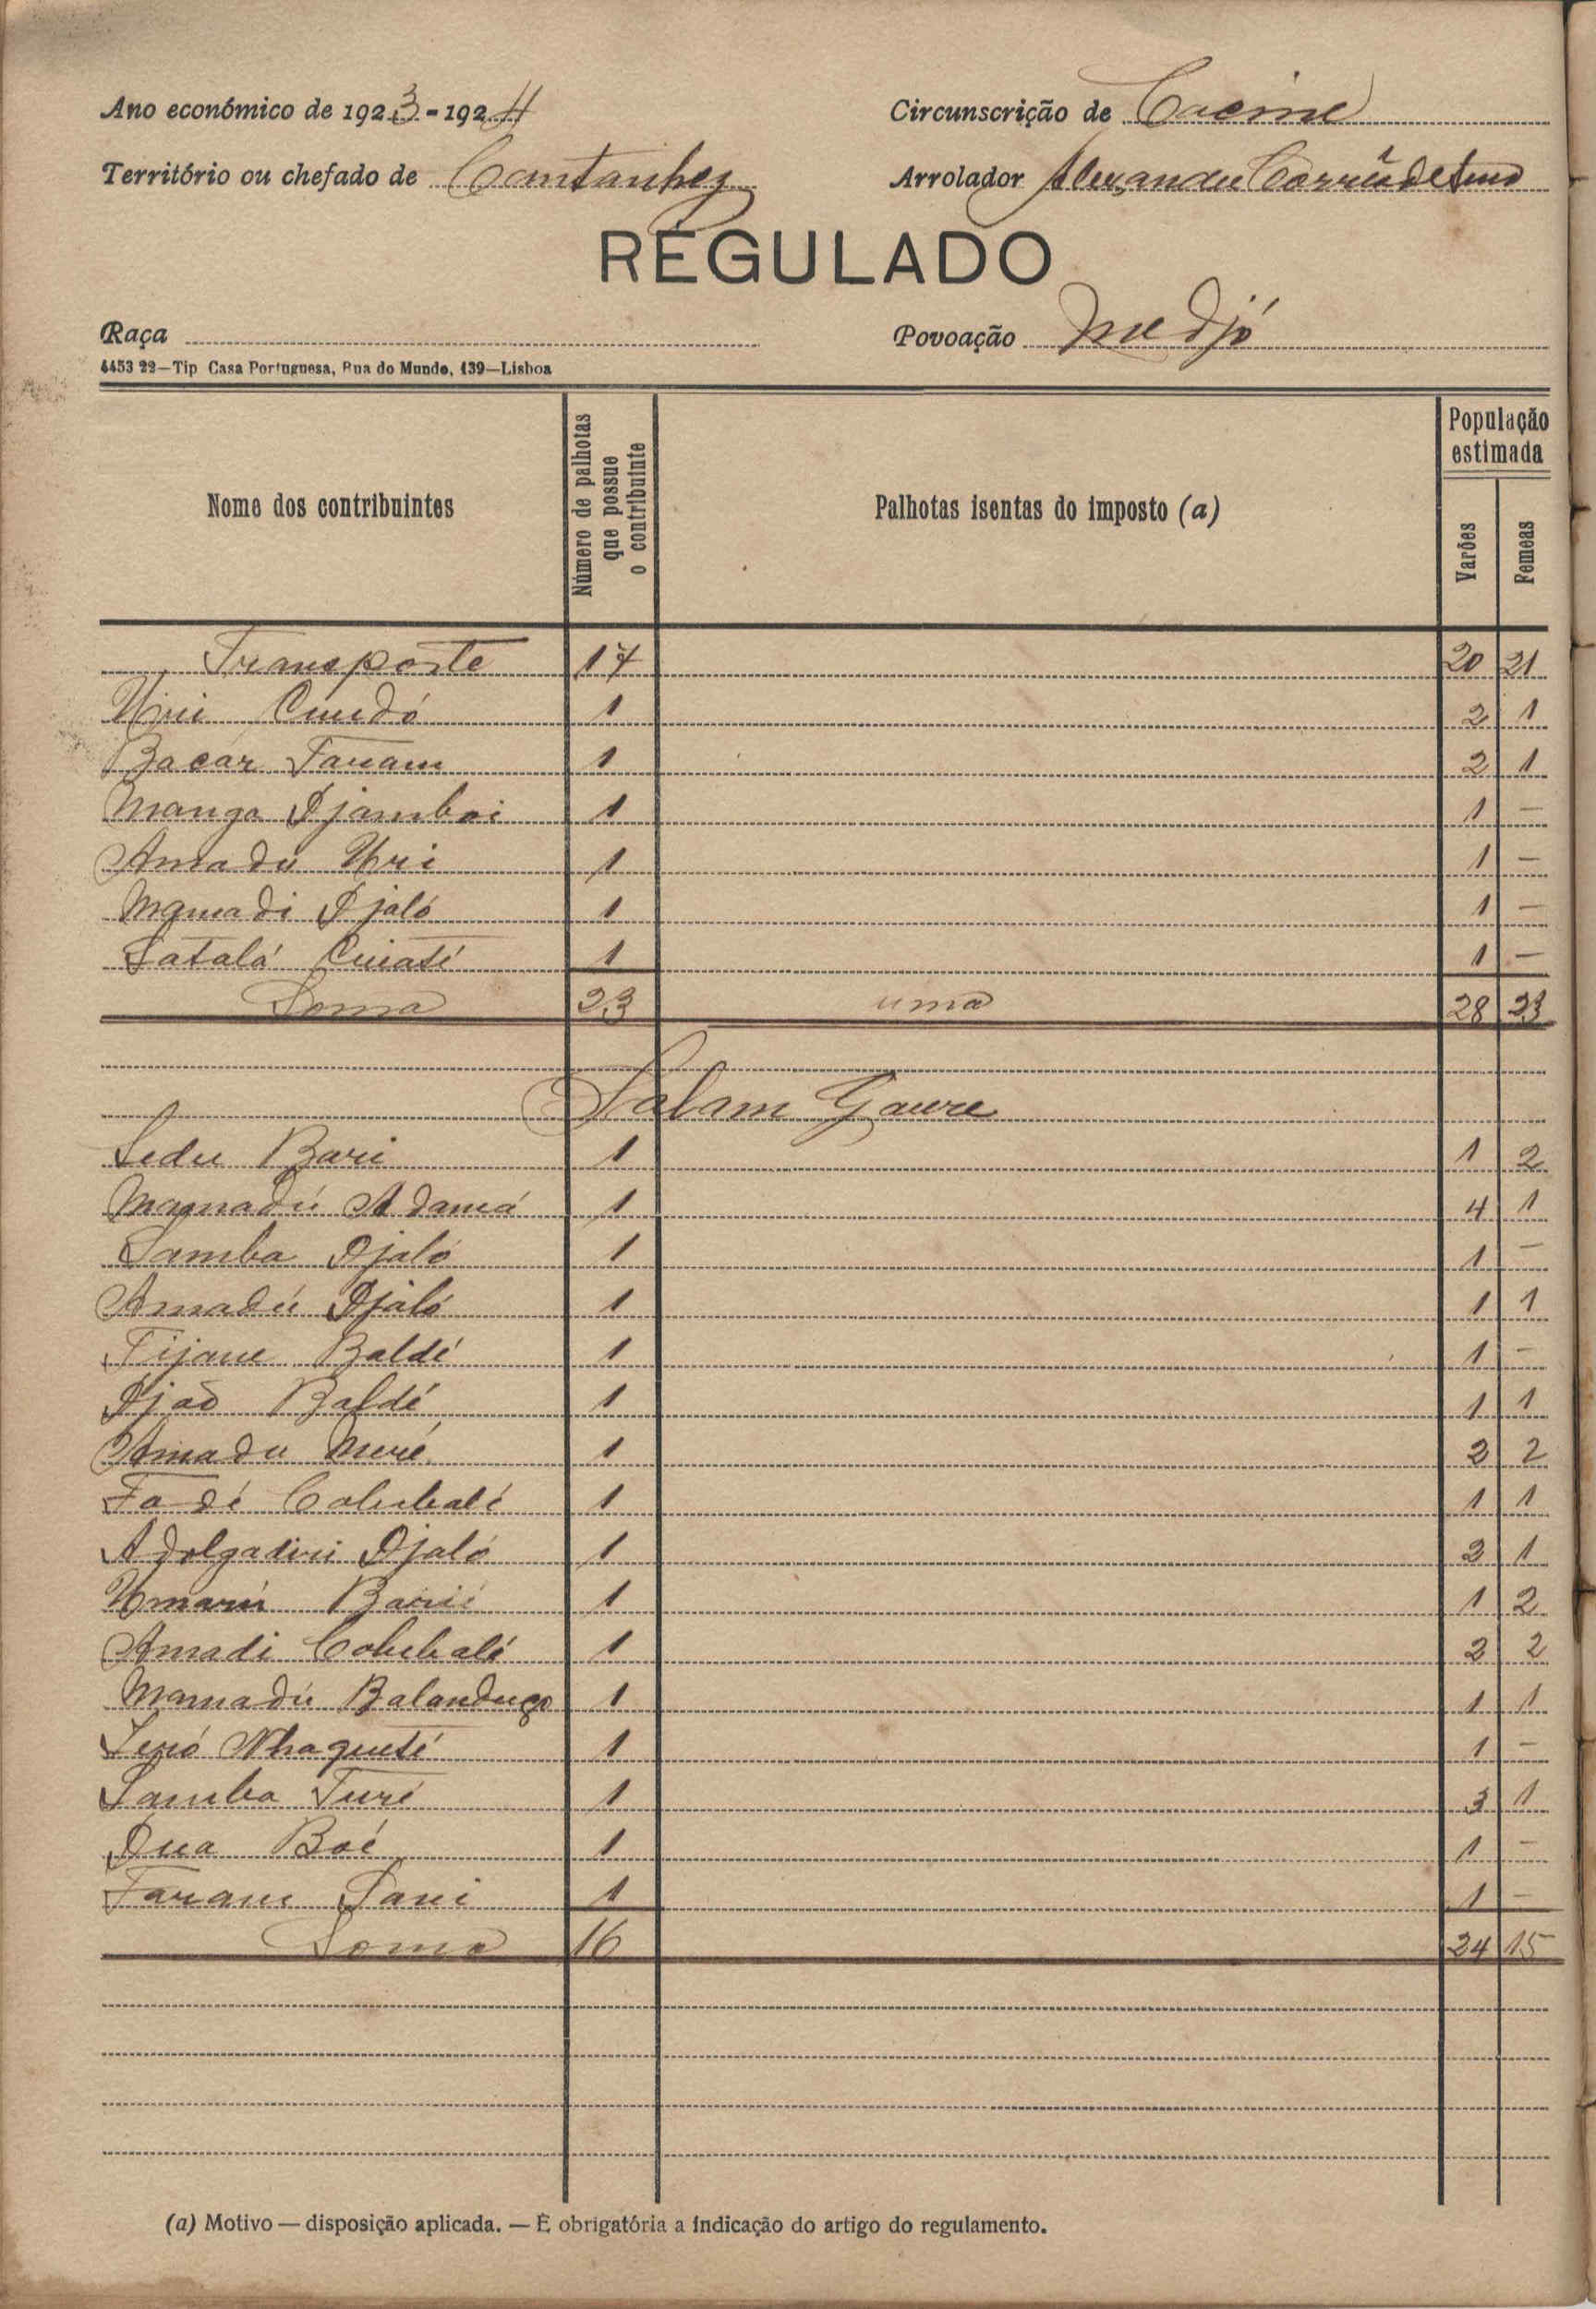 Ano económico de 1923-1924 Circunscrição de Cacine
Território ou chefado de Cantanhez Arrolador Alexandre Corrêa de
REGULADO
Raça Povoação Medjó
4453 22—Tip Casa Portuguesa, Rua do Mundo, 139—Lisboa
Nome dos contribuintes Número de palhotas que possue o contribuinte Palhotas isentas do imposto (a) População estimada Varões Femeas
Transporte 17 20 21
Uri Cumdó 1 2 1
Bacar Fanam 1 2 1
Manga Djamboi 1 1 —
Amadu Uri 1 1 —
Mamadi Djaló 1 1 —
Satalá Cuiaté 1 1 —
Soma 23 uma 28 23
Salam Gaure
Sedu Bari 1 1 2
Mamadú Adamá 1 4 1
Samba Djaló 1 1 —
Amadú Djaló 1 1 1
Tijane Baldé 1 1 —
Djaõ Baldé 1 1 1
Amadu Meré 1 2 2
Fodé Colubali 1 1 1
Adolgadiri Djaló 1 2 1
Umarú Barii 1 1 2
Amadi Colubalé 1 2 2
Mamadú Balandugo 1 1 1
Seró Nhaqueté 1 1 —
Samba Turé 1 3 1
Dua Boé 1 1 —
Faram Sani 1 1 —
Soma 16 24 15
(a) Motivo — disposição aplicada. — É obrigatória a indicação do artigo do regulamento.